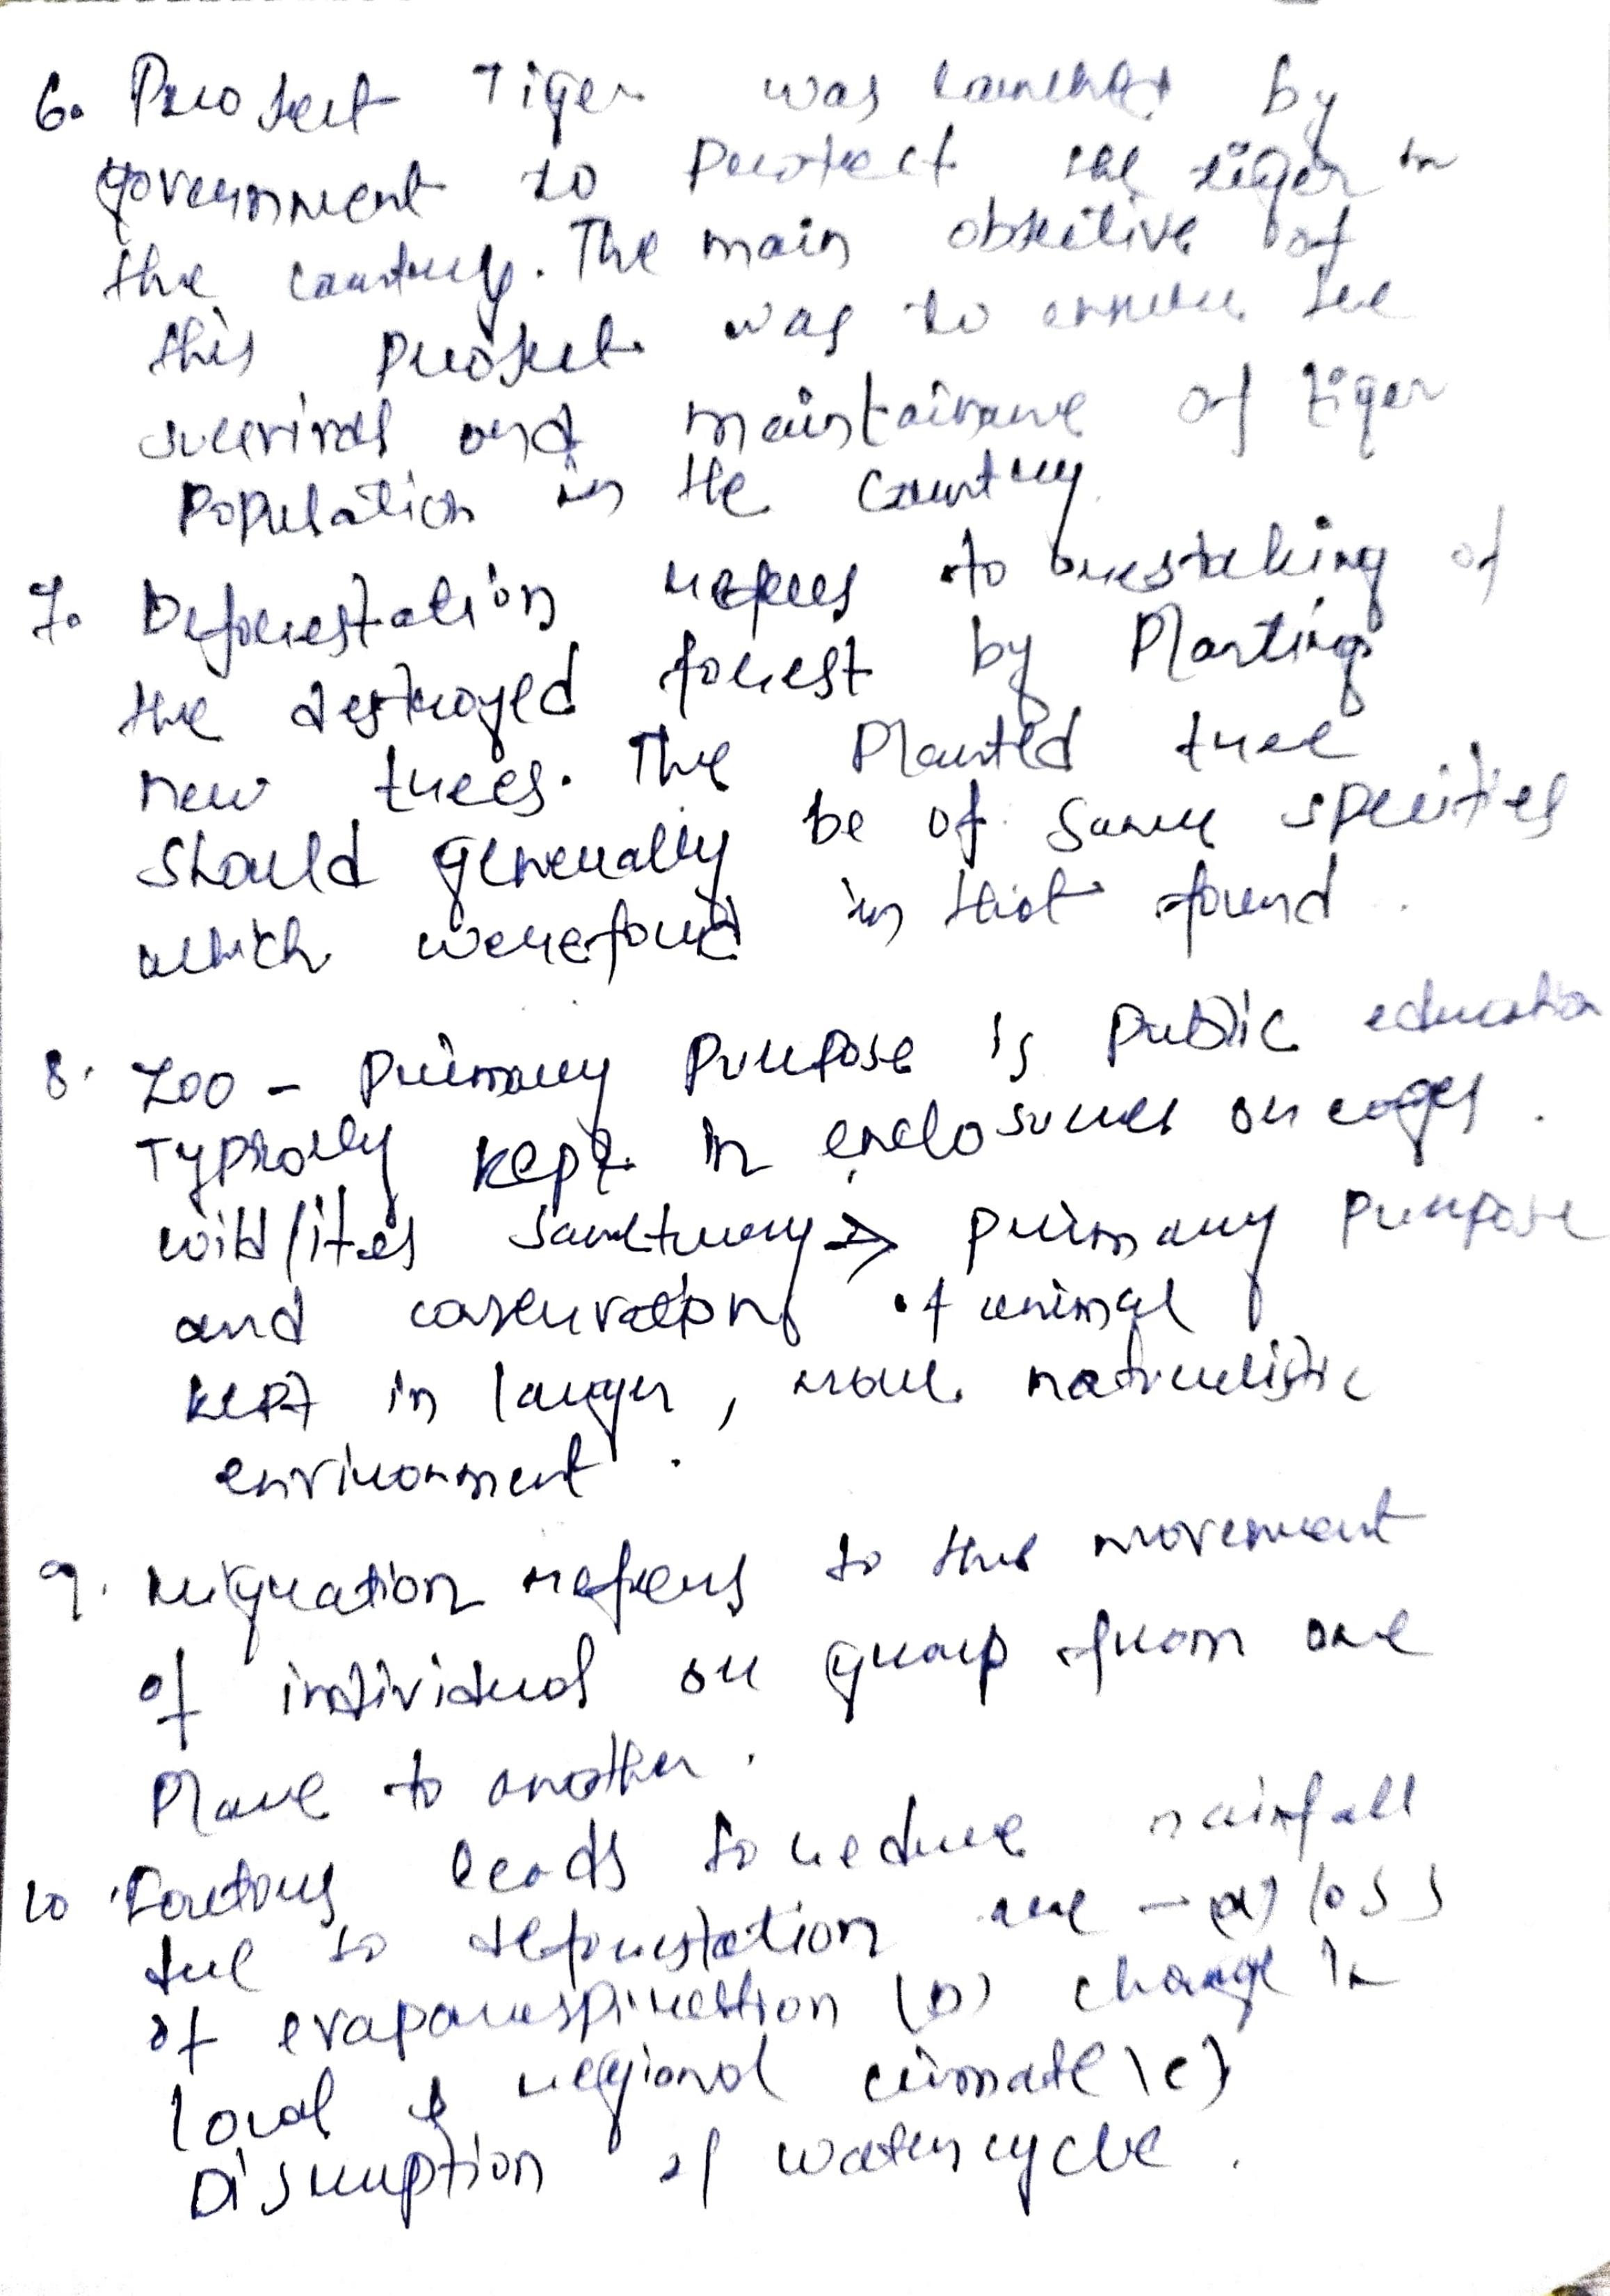 6. Project Tiger was launched by
government to protect the tiger in
the country. The main objective of
this project was to ensure the
survival and maintainance of tiger
population in the country
7. Deforestation refers to of
the destroyed forest by Planting
new trees. The Planted tree
should generally be of same
which were found in that found.
8. Zoo - primary purpose is public education
Typically kept in enclosures or cages.
sanctuary → primary purpose
and conservation of animal
kept in larger, more naturalistic
environment.
9. migration refers to the movement
of individual or group from one
Place to another.
10 Factors leads to reduce rainfall
due to deforestation are - (a) loss
of (b) change in
local & regional climate (c)
Disruption of water cycle.